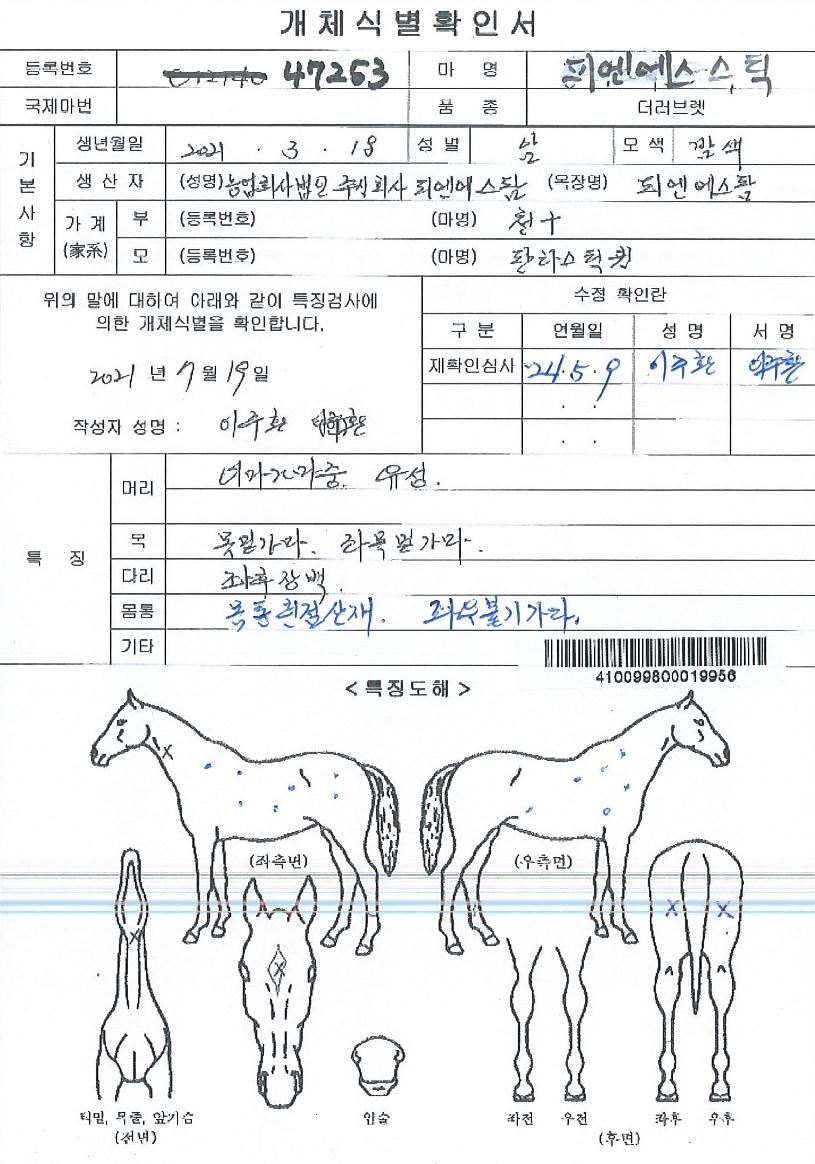 개체식별확인서
등록번호 47253 마 명 피엔에스스틱
국제마번 품 종 더러브렛
기본사항
생년월일 2021 . 3 . 18 성별 암 모색 갈색
생산자 (성명) 농업회사법인 주식회사 피엔에스팜 (목장명) 피엔에스팜
가계 (家系) 부 (등록번호) (마명) 천구
모 (등록번호) (마명) 판타스틱퀸
위의 말에 대하여 아래와 같이 특징검사에
의한 개체식별을 확인합니다.
2021 년 7 월 19 일
작성자 성명 : 이주환
수정 확인란
구 분 연월일 성 명 서 명
재확인심사 '24.5.9 이주환 이주환
. .
. .
특 징
머리 유성.
목 목밑가마. 좌목밑가마.
다리 좌후장백.
몸통 몸통흰점산재. 좌우볼기가마.
기타
410099800019956
<특징도해>
(좌측면) (우측면)
턱밑, 목줄, 앞가슴 입술 좌전 우전 좌후 우후
(전면) (후면)